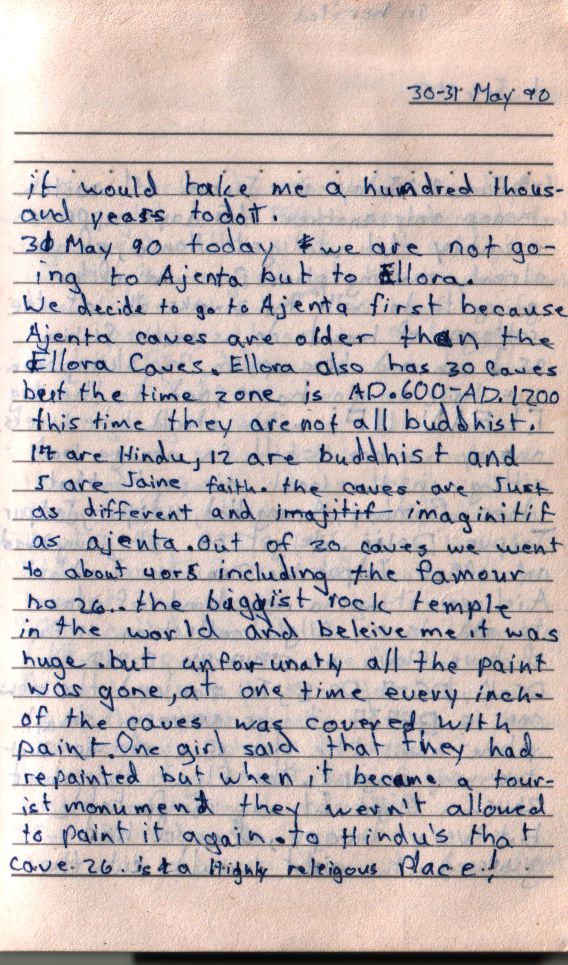 30-31 May 90
it would take me a hundred thous-
and years to do it.
31 May 90 today we are not go-
ing to Ajenta but to Ellora.
We decide to go to Ajenta first because
Ajenta caves are older than the
Ellora Caves. Ellora also has 30 caves
but the time zone is AD.600-AD.1200
this time they are not all buddhist.
17 are Hindu, 12 are buddhist and
5 are Jaine faith. the caves are Just
as different and imajitif imaginitif
as ajenta. Out of 30 caves we went
to about 4or5 including the famour
no 26.. the biggist rock temple
in the world and beleive me it was
huge. but unforunatly all the paint
was gone, at one time every inch-
of the caves was covered with
paint. One girl said that they had
repainted but when it became a tour-
ist monument they wern't allowed
to paint it again. to Hindu's that
cave. 26. is a Highly releigous Place!